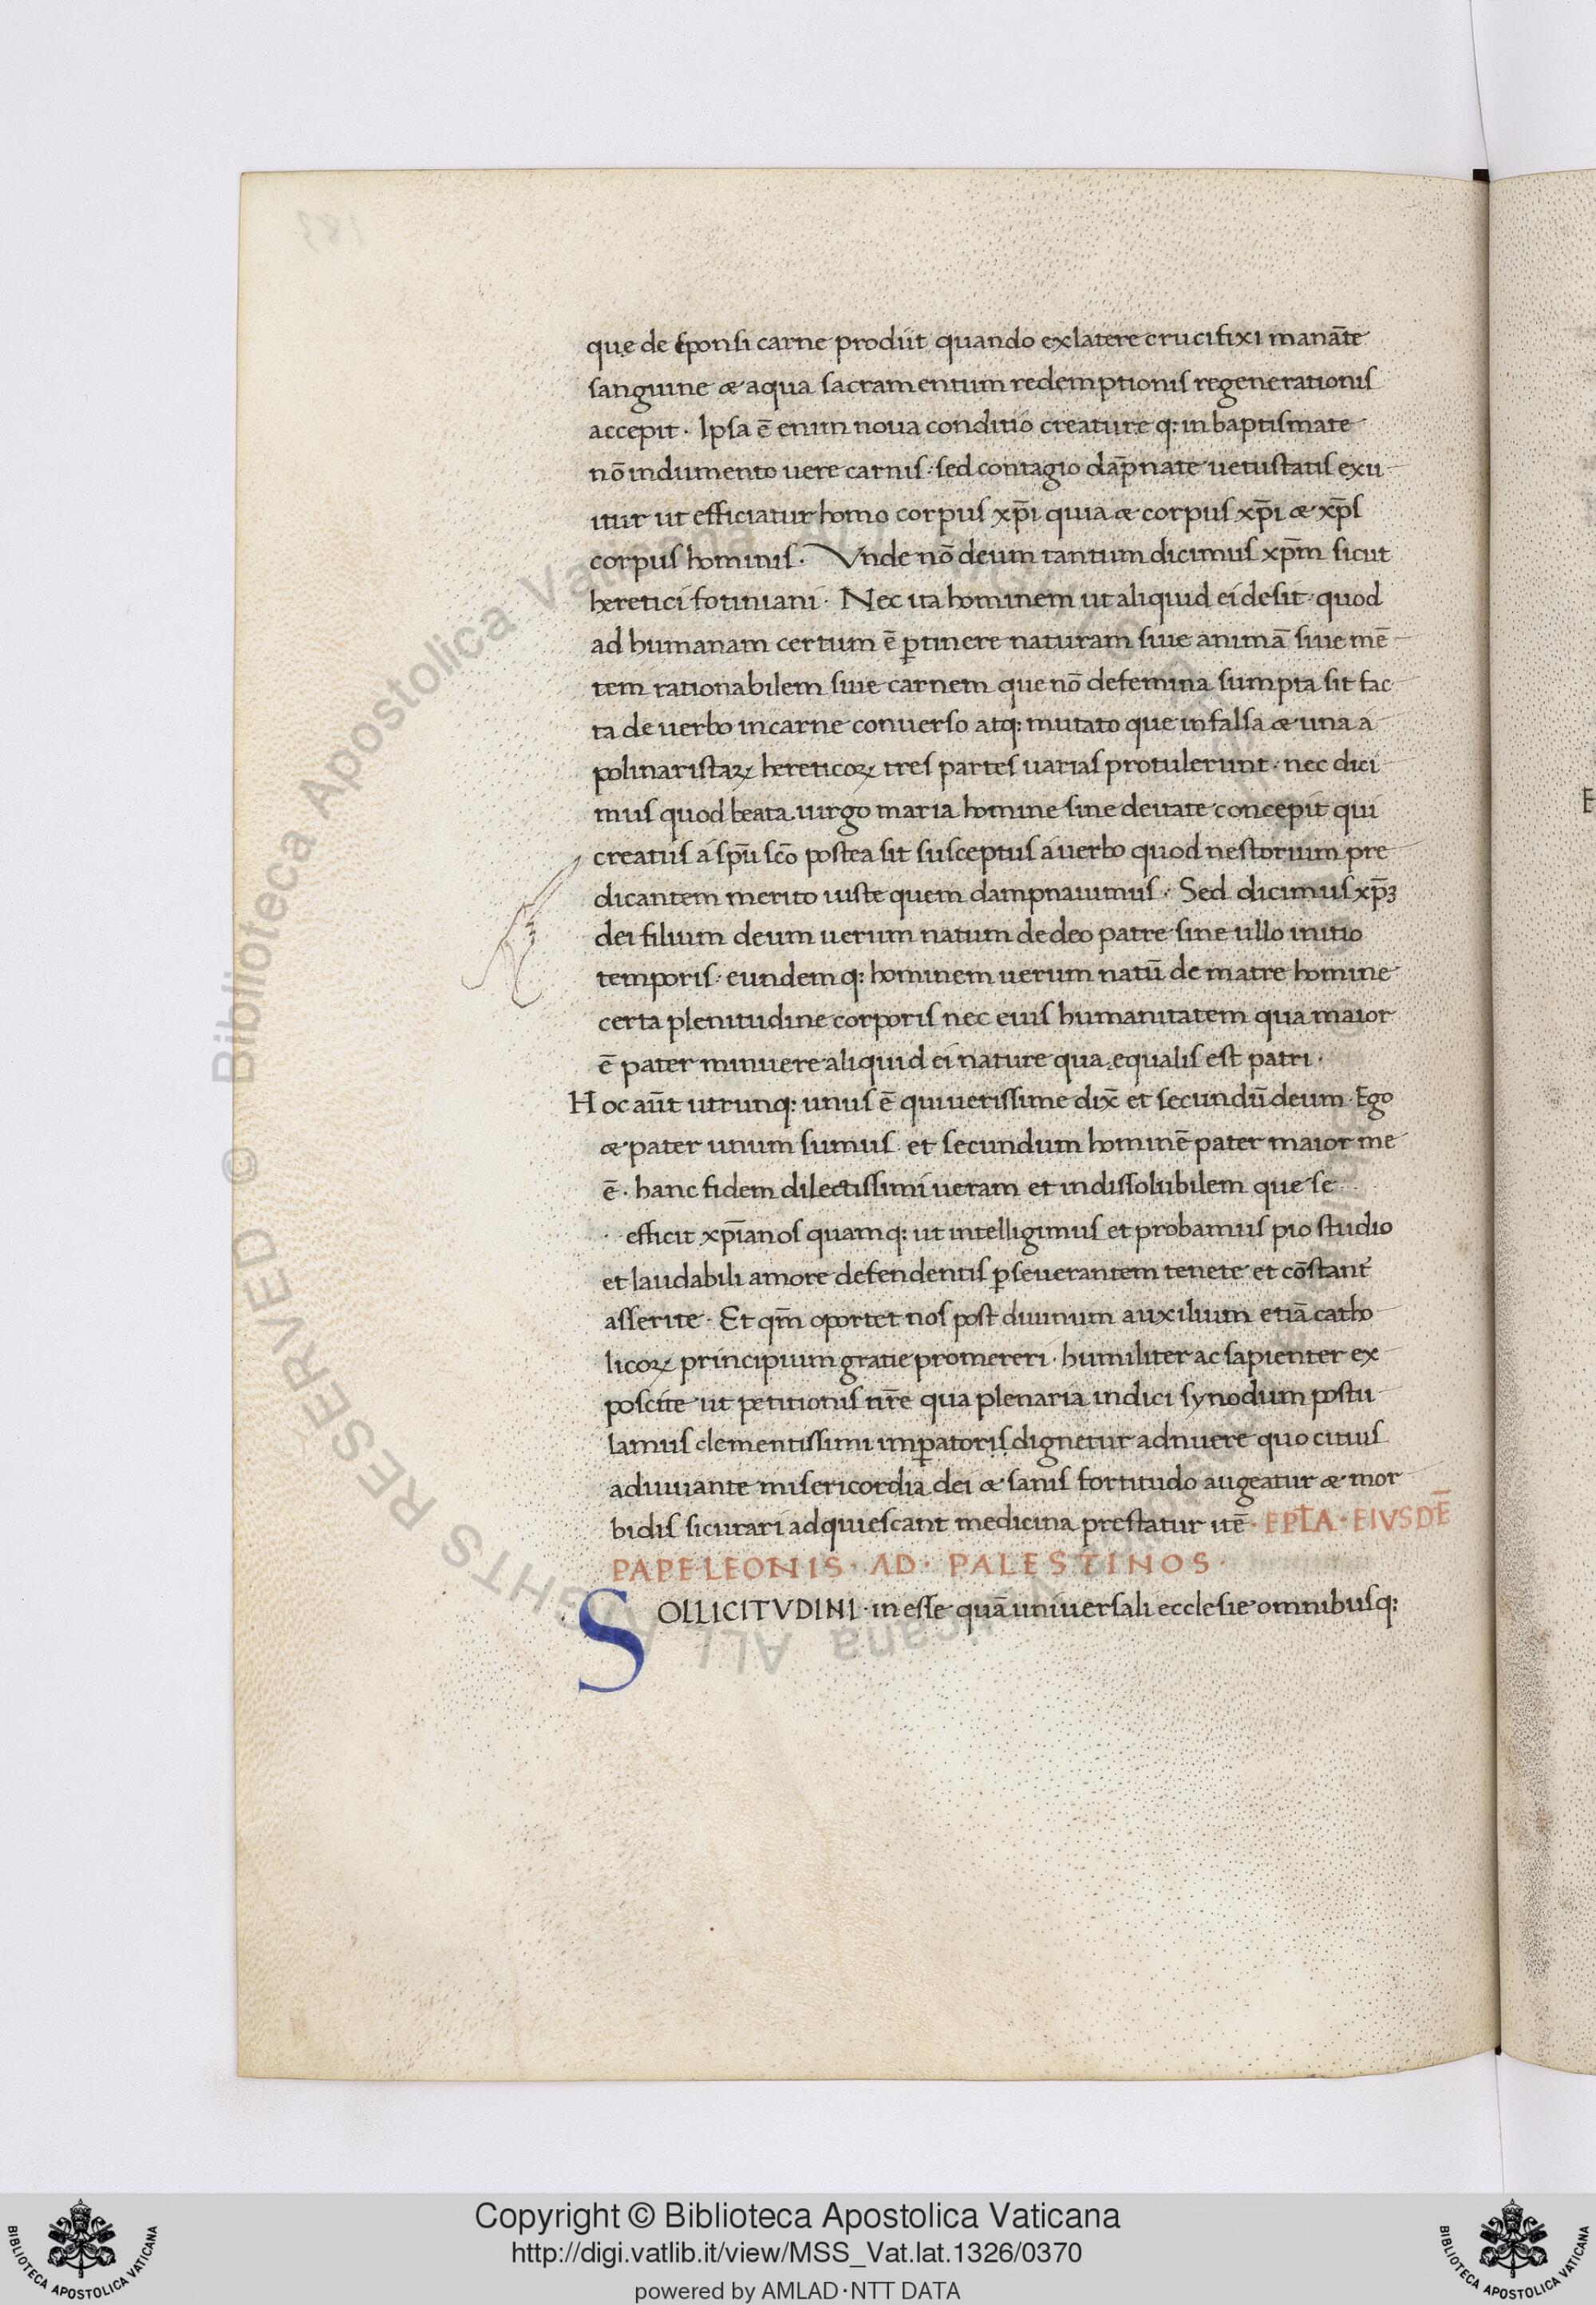 que de sponsi carne prodiit quando ex latere crucifixi manāte
sanguine æ aqua sacramentum redemptionis regenerationis
accepit. Ipsa ē enim noua conditio creature q: in baptismate
nō indumento uere carnis. sed contagio dāpnate uetustatis exu
itur ut efficiatur homo corpus xp̄i quia æ corpus xp̄i æ xp̄s
corpus hominis. Vnde nō deum tantum dicimus xp̄m sicut
heretici fotiniani. Nec ita hominem ut aliquid ei desit. quod
ad humanam certum ē p̱tinere naturam siue animā siue mē
tem rationabilem siue carnem que nō de femina sumpta sit fac
ta de uerbo in carne conuerso atq: mutato que in falsa æ una a
polinaristaꝝ hereticoꝝ tres partes uarias protulerunt. nec dici
mus quod beata uirgo maria homine sine deitate concepit qui
creatus a sp̄u sc̄o postea sit susceptus a uerbo quod nestorium pre
dicantem merito iuste quem dampnauimus. Sed dicimus xp̄ꝫ
dei filium deum uerum natum de deo patre sine ullo initio
temporis. eundemq: hominem uerum natū de matre homine
certa plenitudine corporis nec eius humanitatem qua maior
ē pater minuere aliquid ei nature qua equalis est patri.
Hoc aūt utrunq: unus ē qui uerissime dix̄ et secundū deum. Ego
æ pater unum sumus. et secundum hominē pater maior me
ē. hanc fidem dilectissimi ueram et indissolubilem que se
efficit xp̄ianos quamq: ut intelligimus et probamus pio studio
et laudabili amore defendentis p̱seuerantem tenete et cōstant
asserite. Et qm̄ oportet nos post diuinum auxilium etiā catho
licoꝝ principium gratie promereri. humiliter ac sapienter ex
poscite ut petitionis nr̄e qua plenaria indici synodum postu
lamus clementissimi imp̱atoris dignetur adnuere quo citius
adiuuante misericordia dei æ sanis fortitudo augeatur æ mor
bidis si curari adquiescant medicina prestatur itē. EPĪA. EIVSDĒ
PAPE. LEONIS. AD. PALESTINOS.
SOLLICITVDINI. in esse quā uniuersali ecclesie omnibusq:
Copyright © Biblioteca Apostolica Vaticana
http://digi.vatlib.it/view/MSS_Vat.lat.1326/0370
powered by AMLAD·NTT DATA
BIBLIOTECA APOSTOLICA VATICANA
BIBLIOTECA APOSTOLICA VATICANA